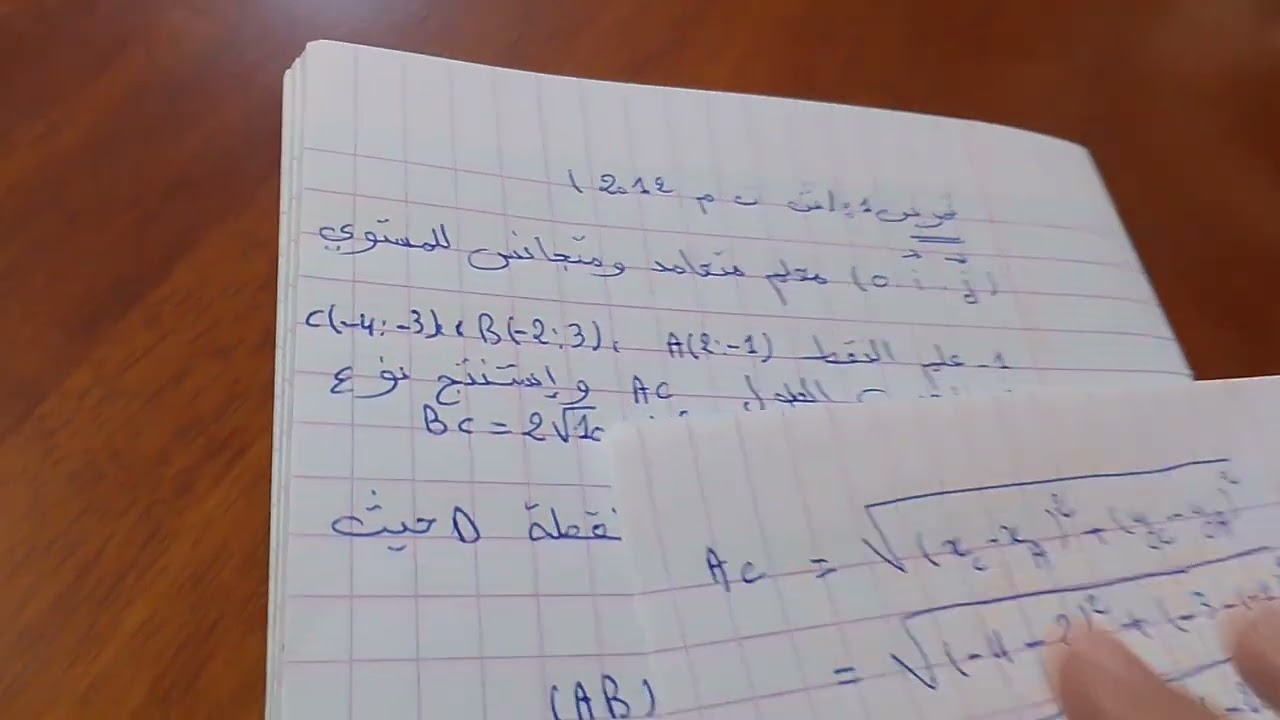 ت م 2012
(o i j) معلم متعامد ومتجانس للمستوي
1- علم النقط A(2;-1) ، B(-2;3) ، C(-4;-3)
الطول AC وإستنتج نوع
BC = 2√1
نقطة D حيث
(AB)
AC = √(x_C - x_A)² + (y_C - y_A)²
= √(-4 - 2)² + (-3 -